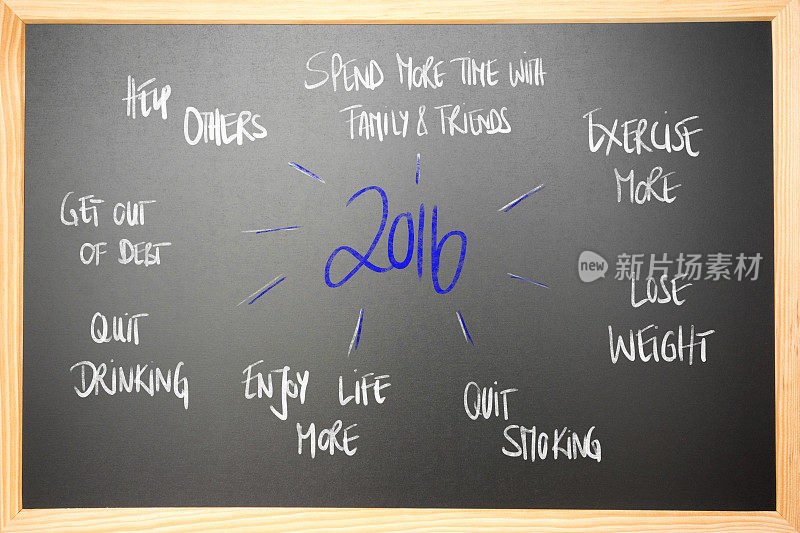 SPEND MORE TIME WITH
FAMILY & FRIENDS
HELP
OTHERS
EXERCISE
MORE
GET OUT
OF DEBT
2016
new 新片场素材
LOSE
WEIGHT
QUIT
DRINKING
ENJOY LIFE
MORE
QUIT
SMOKING